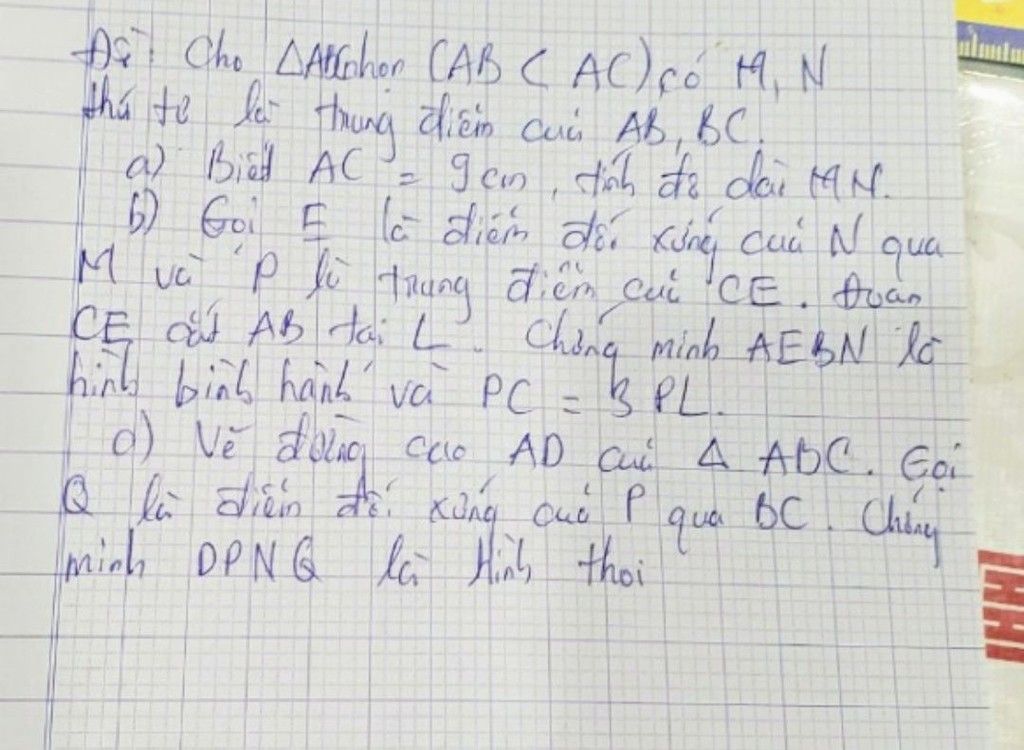 Đề: Cho △ABC nhọn (AB < AC) có M, N
thứ tự là trung điểm của AB, BC.
a) Biết AC = 9cm, tính độ dài MN.
b) Gọi E là điểm đối xứng của N qua
M và P là trung điểm của CE. Đoạn
CE cắt AB tại L. Chứng minh AEBN là
hình bình hành và PC = 3PL.
c) Vẽ đường cao AD của △ ABC. Gọi
Q là điểm đối xứng của P qua BC. Chứng
minh DPNQ là Hình thoi